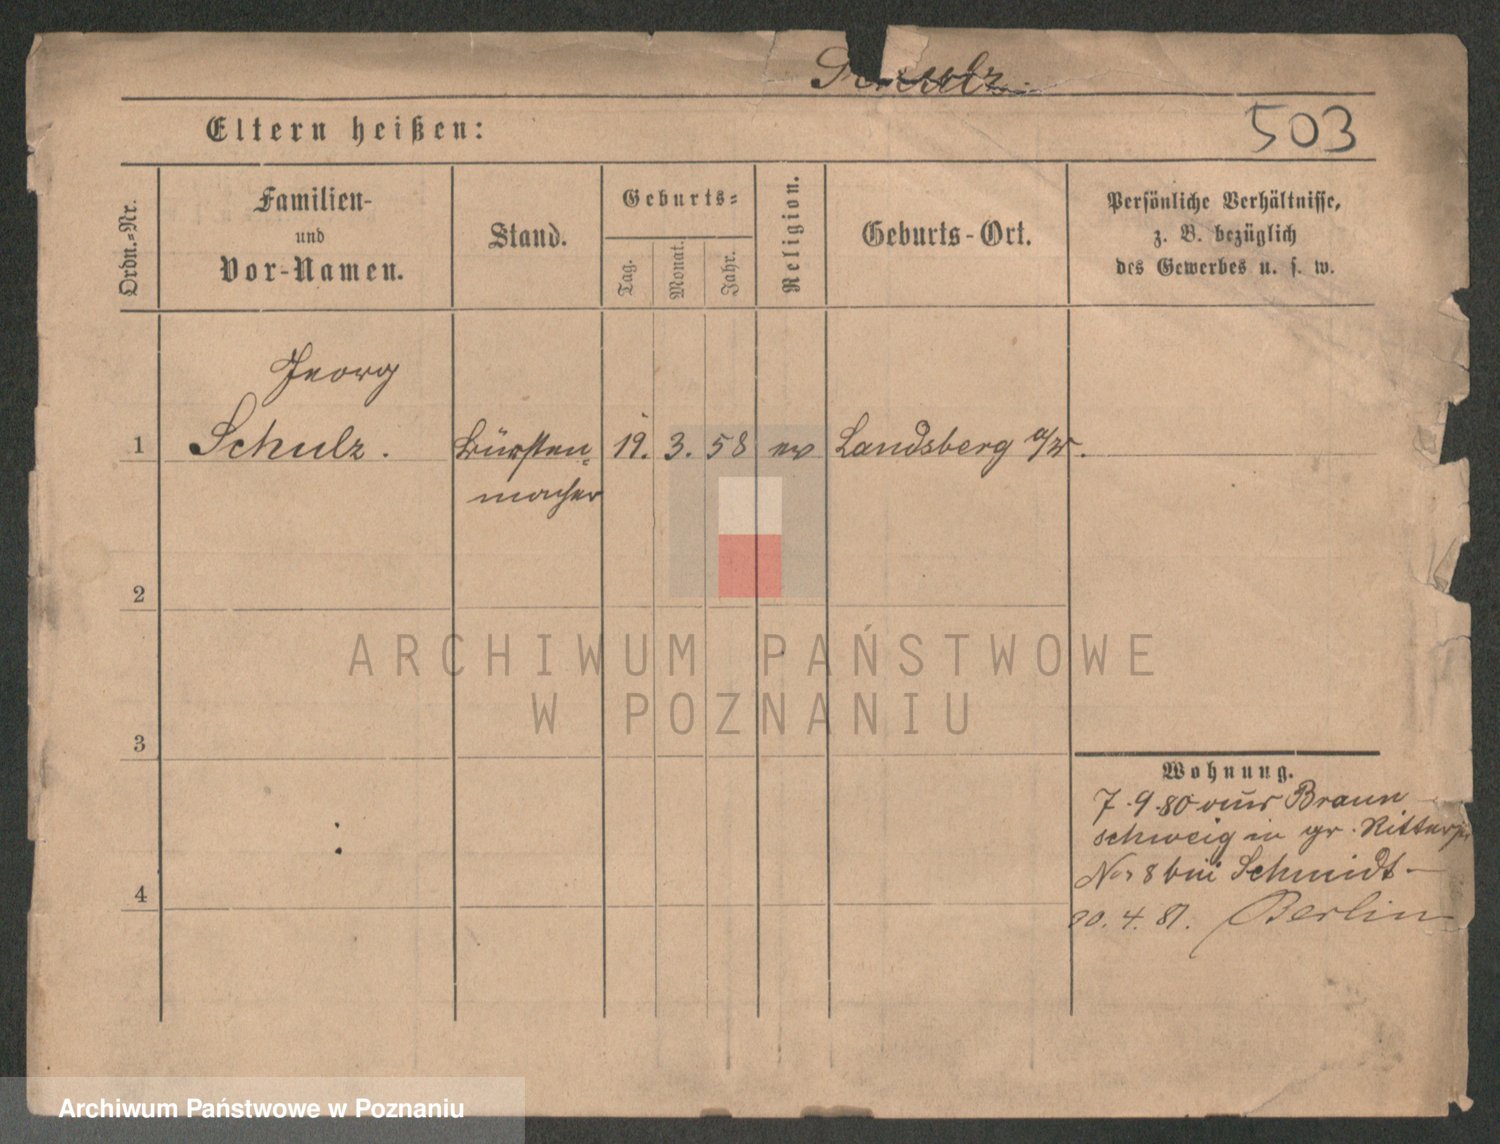 Schulz.
Eltern heißen:
503
Ordn.-Nr.
Familien-
und
Vor-Namen.
Stand.
Geburts-
Tag.
Monat.
Jahr.
Religion.
Geburts-Ort.
Persönliche Verhältnisse,
z. B. bezüglich
des Gewerbes u. s. w.
Georg
1 Schulz. Bürsten= 19. 3. 58 ev Landsberg a/W.
macher
2
ARCHIWUM PAŃSTWOWE
W POZNANIU
3
Wohnung.
7.9.80 aus Braun
schweig in gr. Ritterstr
No 8 bei Schmidt
4
4. 81. Berlin
Archiwum Państwowe w Poznaniu